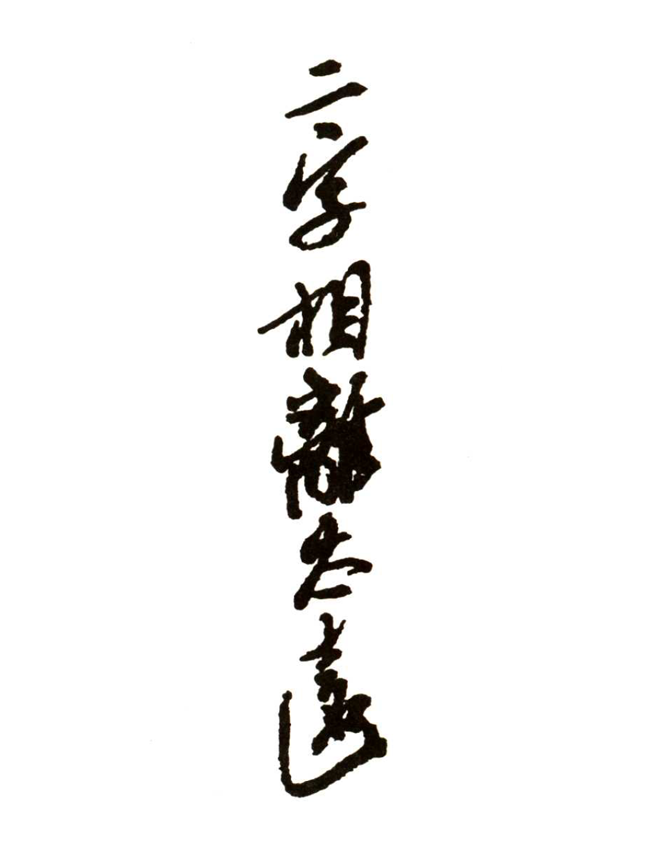 二字相離太遠